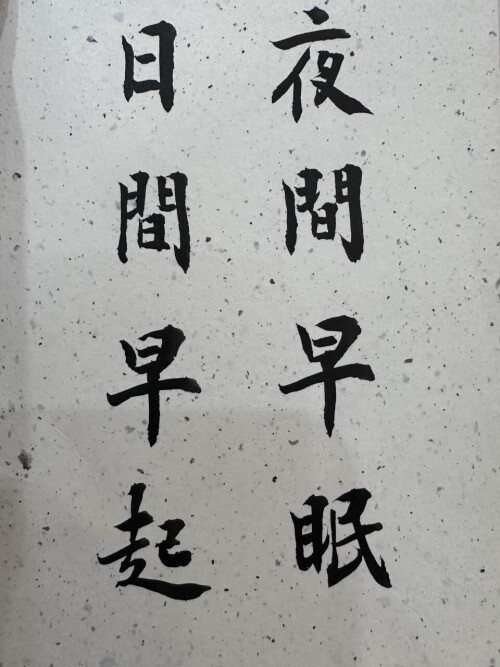 夜間早眠
日間早起